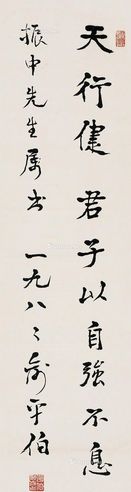 天行健君子以自強不息
振申先生属书 一九八二俞平伯